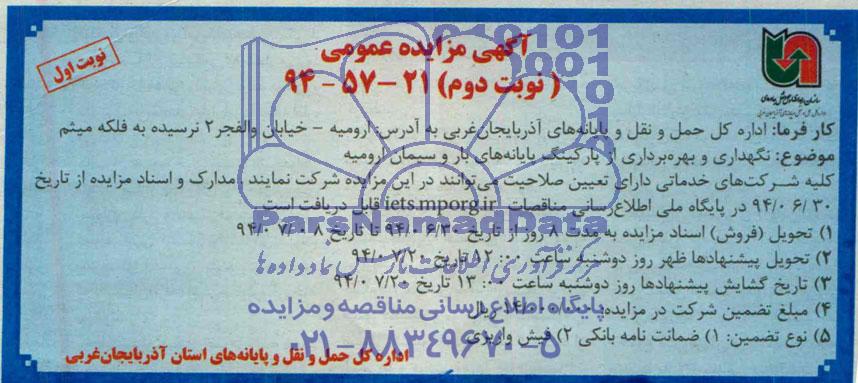 آگهی مزایده عمومی
( نوبت دوم) ۲۱ – ۵۷ – ۹۴
نوبت اول
کار فرما: اداره کل حمل و نقل و پایانه‌های آذربایجان‌غربی به آدرس: ارومیه – خیابان والفجر۲ نرسیده به فلکه میثم
موضوع: نگهداری و بهره‌برداری از پارکینگ پایانه‌های بار و سیمان ارومیه
کلیه شرکت‌های خدماتی دارای تعیین صلاحیت می‌توانند در این مزایده شرکت نمایند مدارک و اسناد مزایده از تاریخ
۹۴/۰۶/۳۰ در پایگاه ملی اطلاع‌رسانی مناقصات iets.mporg.ir قابل دریافت است
۱) تحویل (فروش) اسناد مزایده به مدت ۸ روز از تاریخ ۹۴/۰۶/۳۰ تا تاریخ ۹۴/۰۷/۰۸
۲) تحویل پیشنهادها ظهر روز دوشنبه ساعت ۱۲:۰۰ تاریخ ۹۴/۰۷/۲۰
۳) تاریخ گشایش پیشنهادها روز دوشنبه ساعت ۱۳:۰۰ تاریخ ۹۴/۰۷/۲۰
۴) مبلغ تضمین شرکت در مزایده: ریال
۵) نوع تضمین: ۱) ضمانت نامه بانکی ۲) فیش واریزی
اداره کل حمل و نقل و پایانه‌های استان آذربایجان‌غربی
ParsNamadData
مرکز فرآوری اطلاعات پارس نماد داده ها
پایگاه اطلاع رسانی مناقصه و مزایده
۰۲۱-۸۸۳۴۹۶۷۰-۵